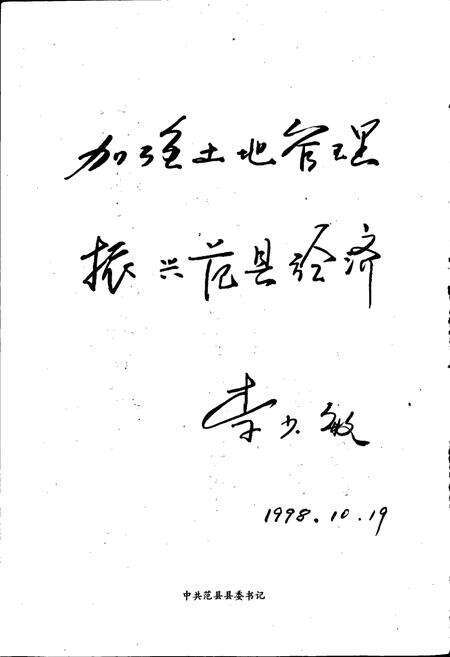 加强土地管理
振兴范县经济
李少敏
1998.10.19
中共范县县委书记